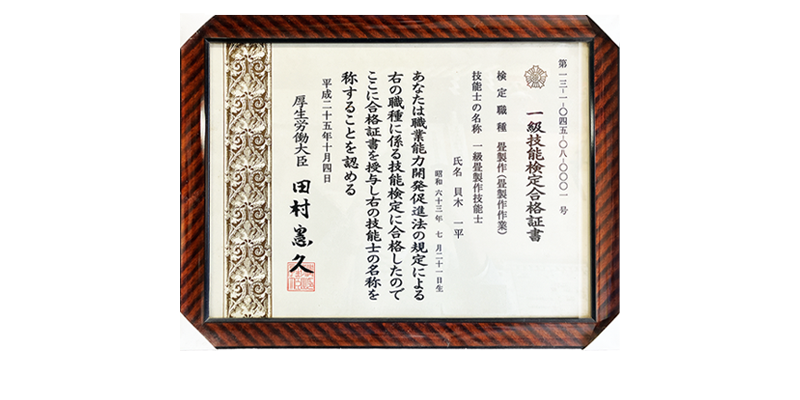 第一三-一-〇四五-〇八-〇〇〇一号
一級技能検定合格証書
検定職種 畳製作(畳製作作業)
技能士の名称 一級畳製作技能士
氏名 貝木 一平
昭和 六十三年 七 月二十一日生
あなたは職業能力開発促進法の規定による
右の職種に係る技能検定に合格したので
ここに合格証書を授与し右の技能士の名称を
称することを認める
平成二十五年十月四日
厚生労働大臣 田村憲久